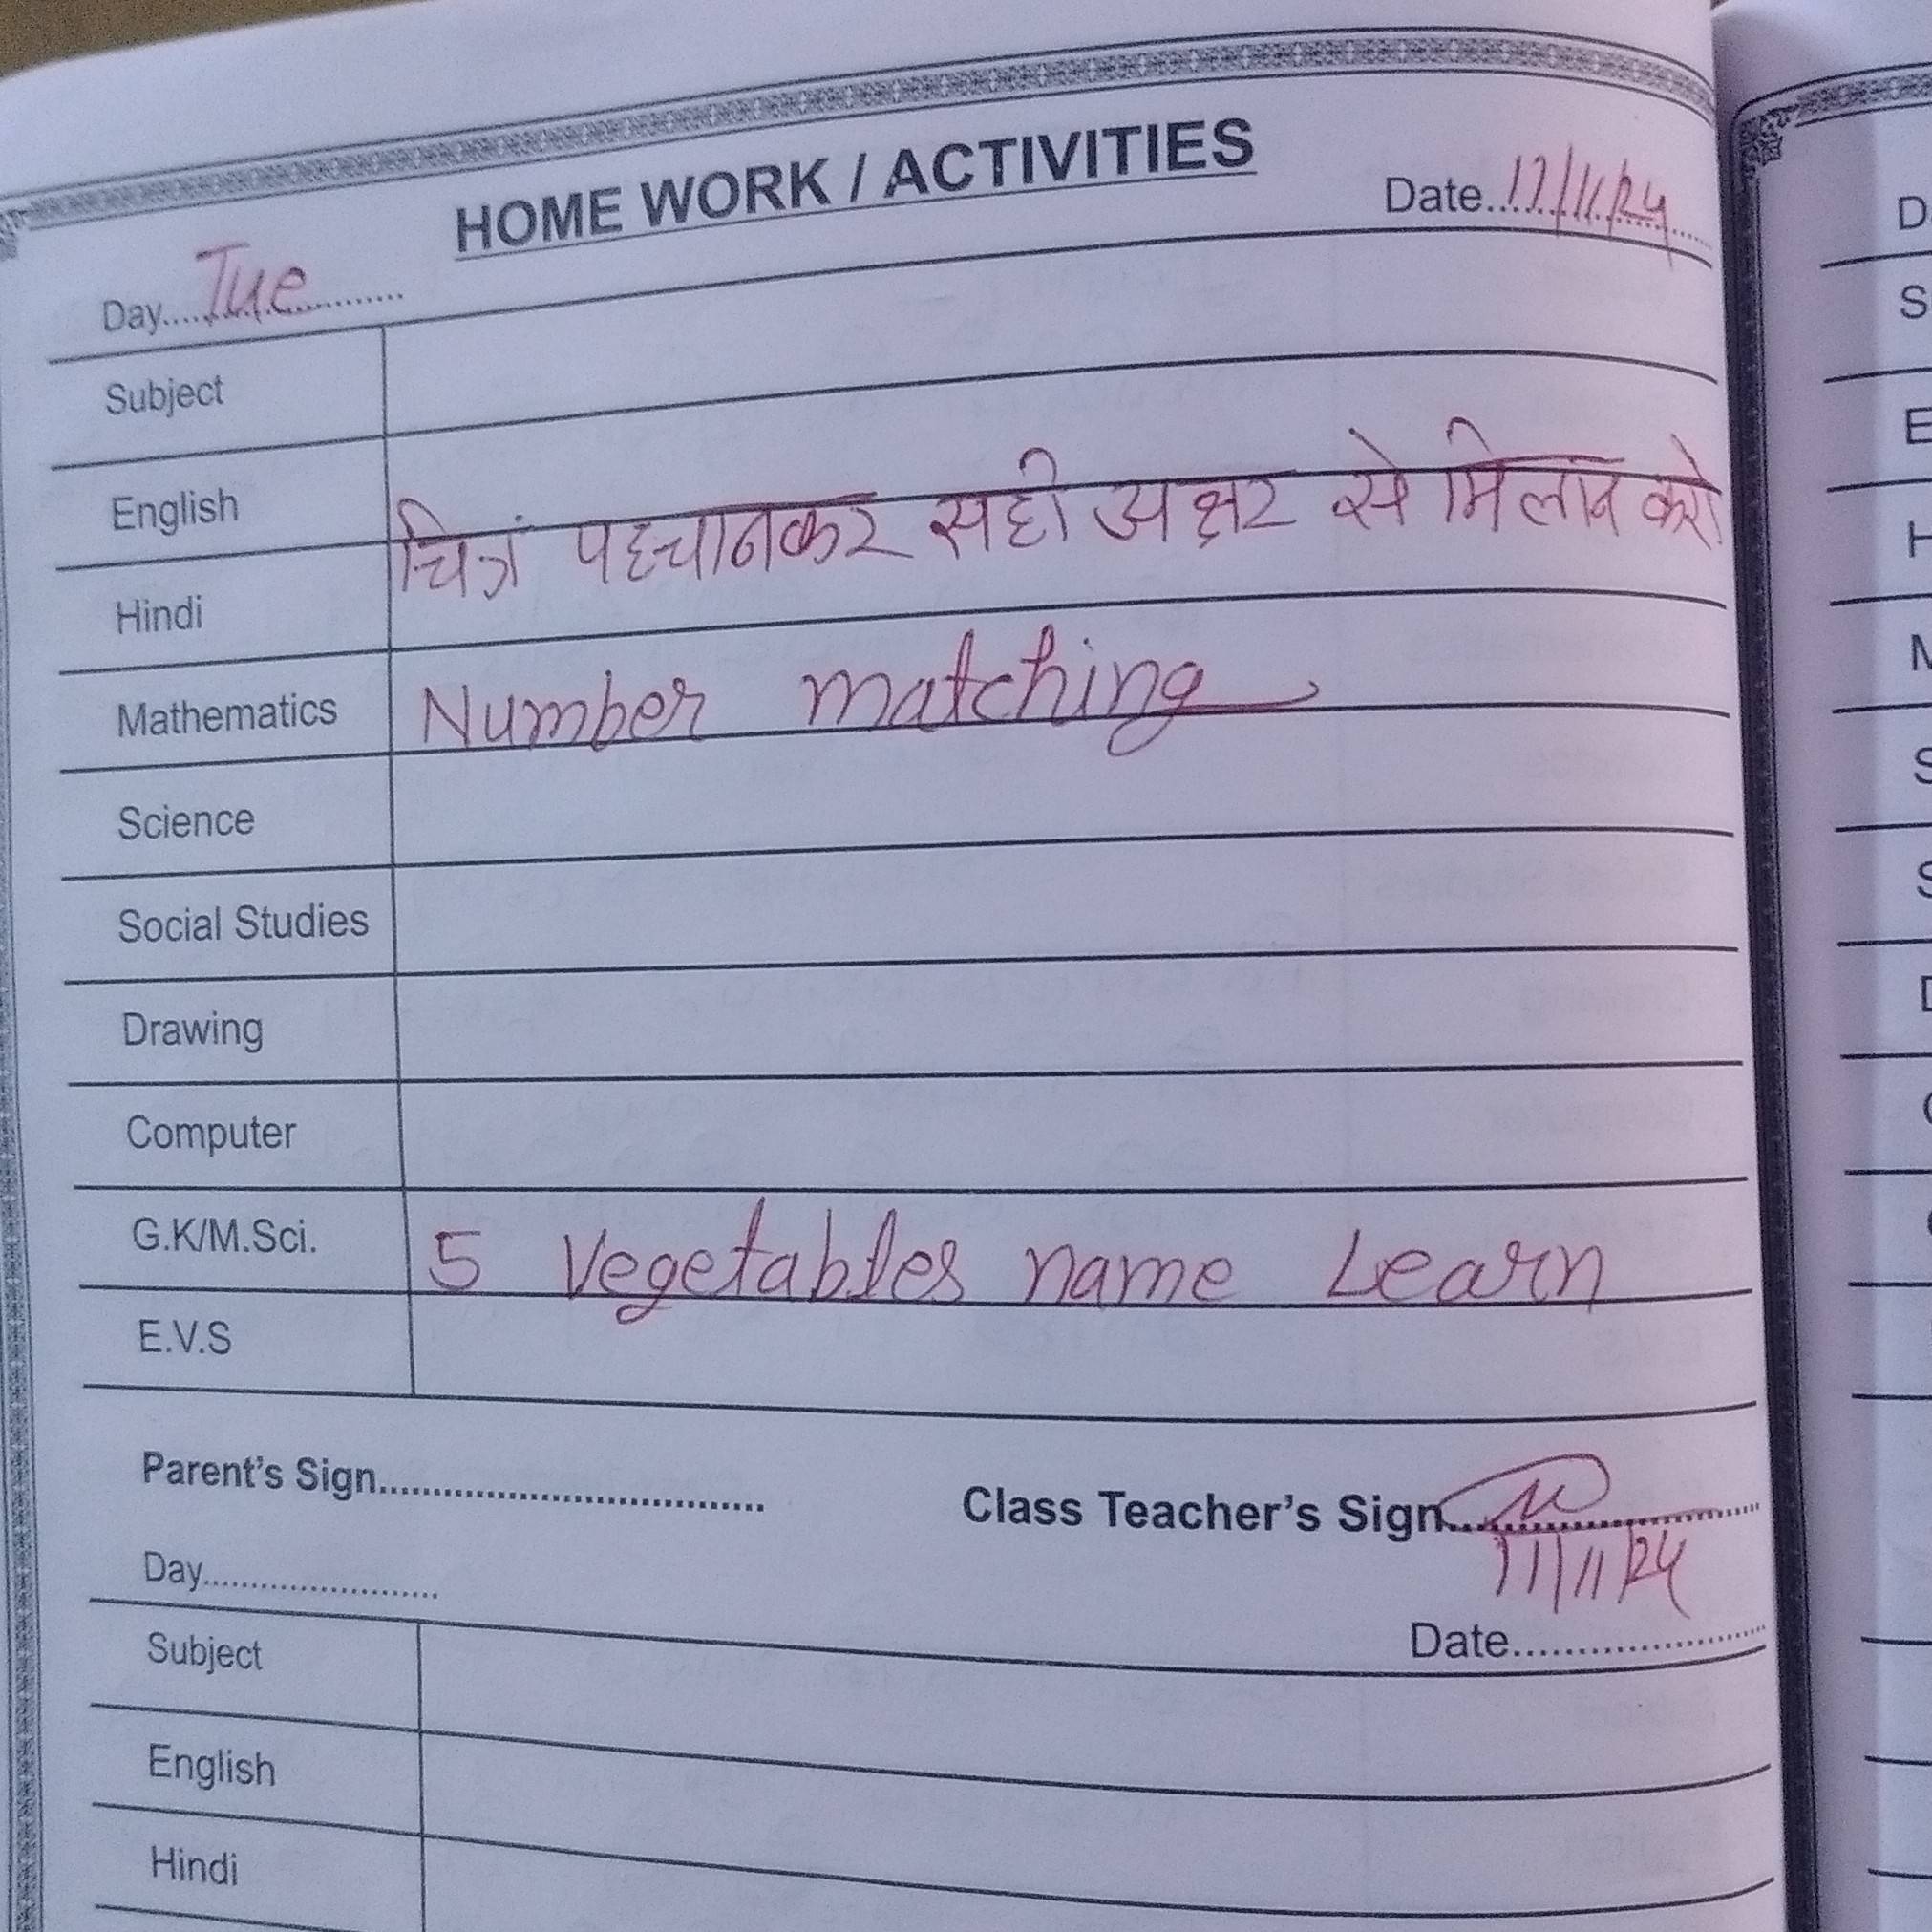 HOME WORK / ACTIVITIES
Day....Tue............ Date..12/11/24
Subject
English
Hindi चित्रं पहचानकर सही अक्षर से मिलान करो
Mathematics Number matching
Science
Social Studies
Drawing
Computer
G.K/M.Sci. 5 Vegetables name Learn
E.V.S
Parent's Sign........................................ Class Teacher's Sign............................
11/11/24
Day........................ Date..........................
Subject
English
Hindi